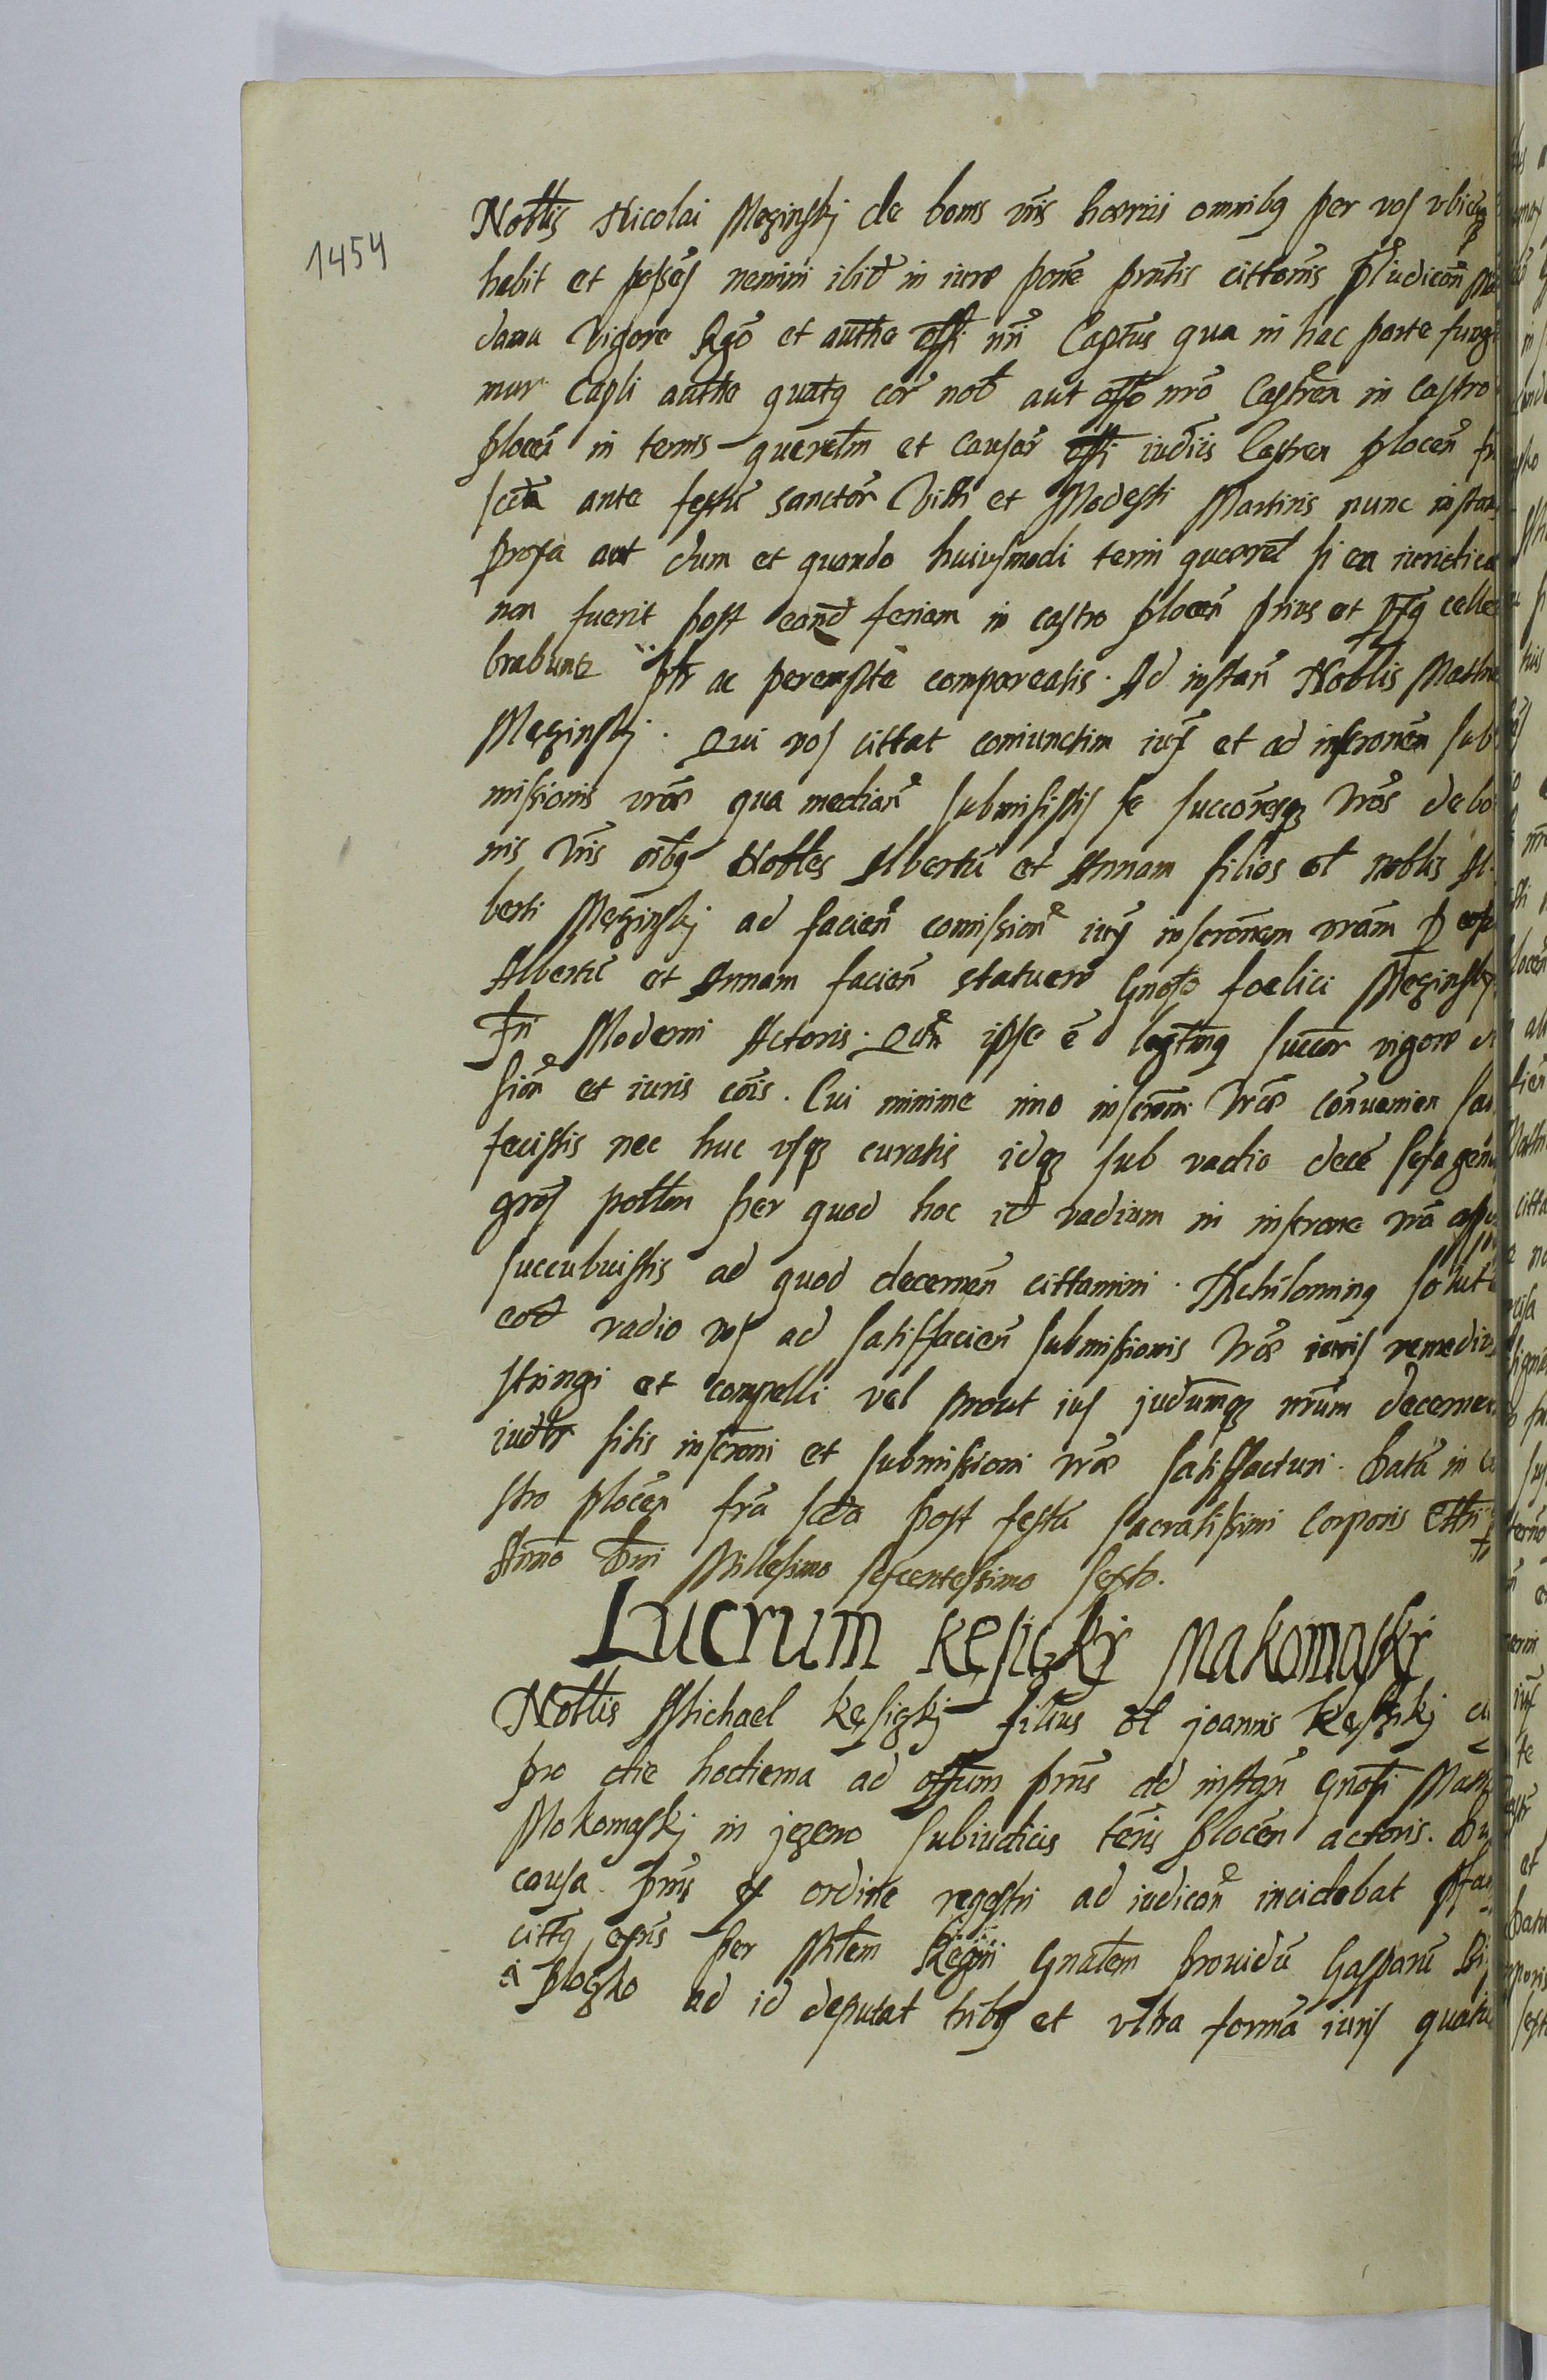 1454
Nobltis Nicolai Męzinskj de bonis vris haeriis omnibq per vos vbicq
habit et possēs nemini ibid in iure pone prntis cittanis piudicon
damu Vigore Rgō et authe offi nri Captus qua in hac parte fungi
mur Capli authe quatq cor nob aut offo nro Castren in castro
plocen in termis querelm et causar offi iudiis Castren plocen
scda ante festu sanctor Viti et Modesti Martiris nunc instan
proxa aut dum et quando huiusmodi termi quaerel si ea iuridica
non fuerit post eand feriam in castro plocen prius et celle
brabuntr ptr ac perempte compareatis. Ad instan Noblis Mathi
Męzinskj. Qui vos cittat coniunctim iux et ad inscronem sub
missionis vrae qua median submisistis se succoresqz vros de bo
nis vris oibq Nobles Albertu et Annam filios ol noblis Al
berti Męzinskj ad facien comission iux inscronem vram p eosd
Albertu et Annam facien statuere Gnoso foelici Męzinskj
Fri Moderni Actoris. Qui ipse ē legtimq succor vigore di
sion et iuris cois. Cui minime imo inscroni vrae conuenien sat
fecistis nec huc vsqz curatis idqz sub vadio decē sexagenis
gros pollon per quod hoc id vadium in inscrone vra
succubuistis ad quod decernen cittamini. Nihilominq soluto
eod vadio vos ad satisfacien submissionis vrae iuris remediis
stringi et compelli vel prout ius judumqz nrum decernen
iudtr sitis inscroni et submissioni vrae satisfacturi. Datu in ca
stro plocen fria scda post festu sacratissimi Corporis Chri
Anno Dni Millesimo sexcentessimo sexto.
Lucrum Kęsickj Makomaskj
Nobltis Michael Kęsiczkj filius ol joannis Kęsiczkj
pro die hodierna ad offium prns ad instan Gnosi
Mokomaskj in jezero subiudicis teris plocen actoris.
causa prns ex ordine regestri ad iudican incidebat
cittq exns per Milem Regni Gnalem prouidu Gasparu
a Ploczko ad id deputat tribq et vltra forma iuris